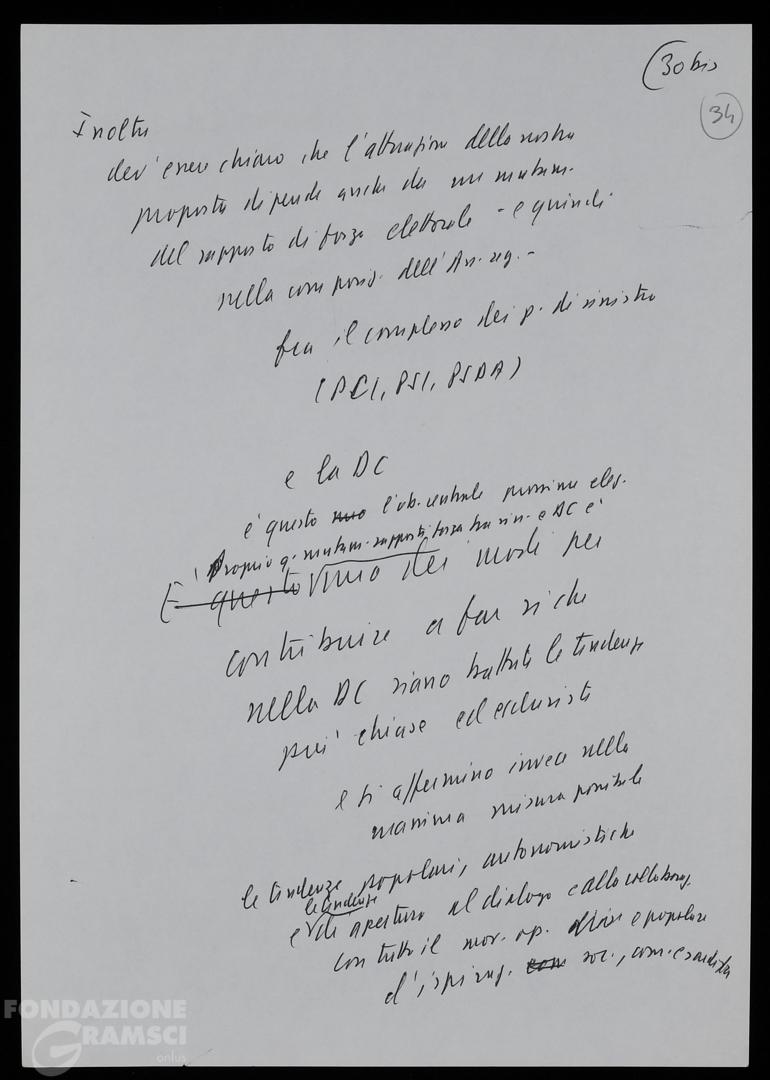 (30 bis
34
Inoltre
dev'essere chiaro che l'attuazione della nostra
proposta dipende anche da un mutam.
del rapporto di forza elettorale - e quindi
nella compos. dell'Ass. reg. -
fra il complesso dei p. di sinistra
(PCI, PSI, PSDA)
e la DC
e' questo l'ob. centrale prossime elez.
Proprio q. mutam. rapporti forza tra sin. e DC e'
E' questo uno dei modi per
contribuire a far si che
nella DC siano battute le tendenze
piu' chiuse ed esclusiviste
e si affermino invece nella
massima misura possibile
le tendenze popolari, autonomistiche
le tendenze
e di apertura al dialogo e alla collaboraz.
con tutto il mov. op. e popolare
d'ispiraz. soc., com. e sardista
FONDAZIONE
GRAMSCI
onlus